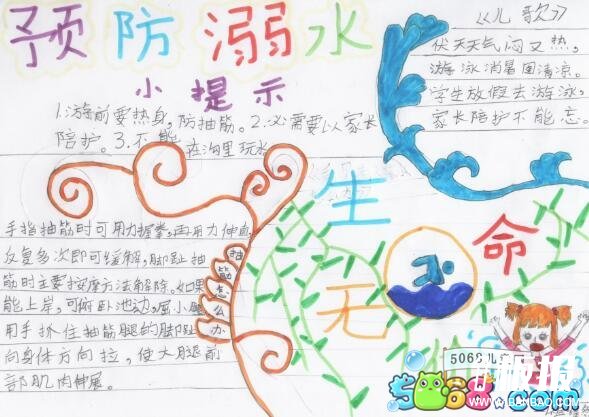 预防溺水
小提示
1.游前要热身,防抽筋。2.必需要以家长
陪护。3.不能在沟里玩水
《儿歌》
伏天天气闷又热,
游泳消暑图清凉。
学生放假去游泳,
家长陪护不能忘。
手指抽筋时可用力握拳,再用力伸直
反复多次即可缓解,脚趾抽
筋时主要按摩方法解除。如果
能上岸,可俯卧池边,屈小腿
用手抓住抽筋腿的脚趾
向身体方向拉,使大腿前
部肌肉伸展。
抽筋怎么办
生
命
无
5068儿
板报
WWW.BANBAO.COM